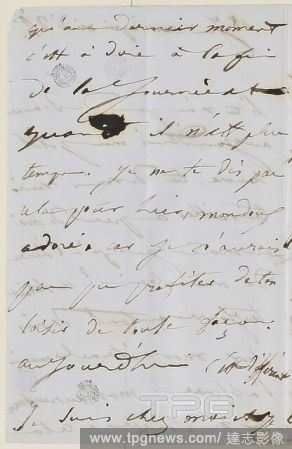 qu'au dernier moment
c'est à dire à la fin
de la journée et
quand il n'est plus
temps. Je ne te dis pas
cela pour hier, mon doux
adoré, car je n'aurais
pas pu profiter de ton
loisir de toute façon.
aujourd'hui c'est différent
Je suis chez moi et
TPG
www.tpgnews.com / 達志影像